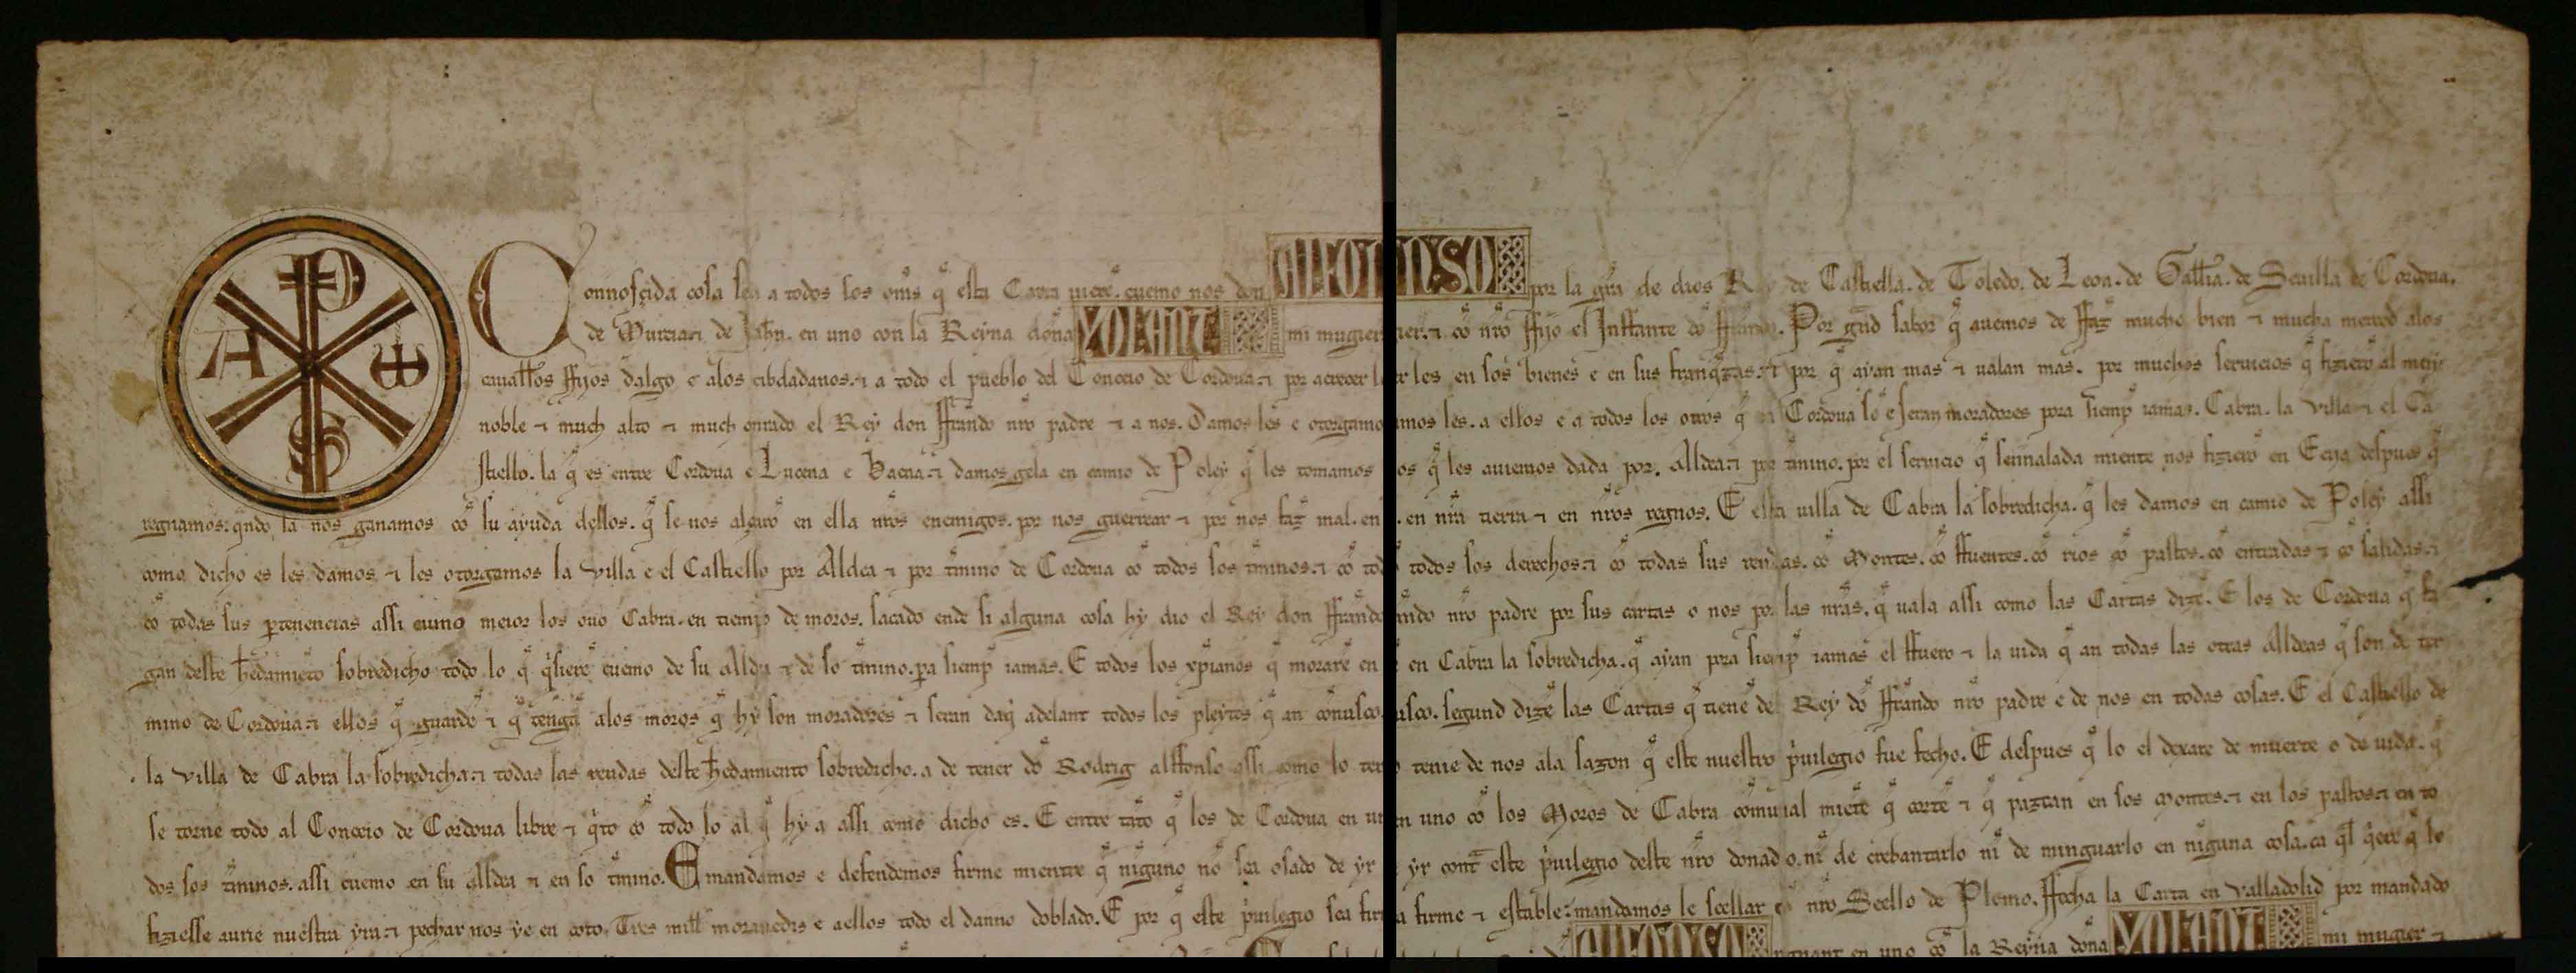 Connosçida cosa sea a todos los om̃s q̃ esta Carta uierẽ. cuemo nos don ALFONSO por la gr̃a de dios Rey de Castiella. de Toledo. de Leon. de Gallizia. de Seuilla de Cordoua.
de Murcia ⁊ de Jahn̄. en uno con la Reyna doña YOLANT mi mugier ⁊ cõ nr̃o ffijo el Inffante dõ ffrando. Por grãd sabor q̃ auemos de ffaz̃ mucho bien ⁊ mucha merced alos
cauall̃os ffijos dalgo e alos cibdadanos. ⁊ a todo el pueblo del Conceio de Cordoua. ⁊ por acrecer les en sos bienes e en sus franq̃zas. ⁊ por q̃ ayan mas ⁊ ualan mas. por muchos seruicios q̃ fizierõ al muy
noble ⁊ much alto ⁊ much onrrado el Rey don ffrãndo nr̃o padre ⁊ a nos. Damos les e otorgamos les. a ellos e a todos los otros q̃ en Cordoua sõ e seran moradores pora siemp̃ iamas. Cabra. la Villa ⁊ el Ca
stiello. la q̃ es entre Cordoua e Lucena e Baena. ⁊ damos gela en camio de Poley q̃ les tomamos q̃ les auiemos dada por Aldea ⁊ por t̃mino. por el seruicio q̃ sennalada miente nos fizierõ en Ecija despues q̃
regnamos: q̃ndo la nos ganamos cõ su ayuda dellos. q̃ se nos alçarõ en ella nr̃os enemigos. por nos guerrear ⁊ por nos faz̃ mal. en nr̃a tierra ⁊ en nr̃os regnos. E esta uilla de Cabra la sobredicha. q̃ les damos en camio de Poley assi
como dicho es les damos ⁊ les otorgamos la Villa e el Castiello por Aldea ⁊ por t̃mino de Cordoua cõ todos sos t̃minos. ⁊ cõ todos los derechos. ⁊ cõ todas sus rendas. cõ Montes. cõ ffuentes. cõ rios cõ pastos. cõ entradas ⁊ cõ salidas. ⁊
cõ todas sus ꝑtenencias assi cumo meior los ouo Cabra. en tiemp̃ de moros. sacado ende si alguna cosa hy dio el Rey don ffrãndo nr̃o padre por sus cartas o nos por las nr̃as. q̃ uala assi como las Cartas dizẽ. E los de Cordoua q̃ fa
gan deste h̃edamiẽto sobredicho todo lo q̃ q̃sierẽ cuemo de su Aldea ⁊ de so t̃mino. pora siemp̃ iamas. E todos los xp̃ianos q̃ morarẽ en Cabra la sobredicha. q̃ ayan pora siemp̃ iamas el ffuero ⁊ la uida q̃ an todas las otras Aldeas q̃ son de ter
mino de Cordoua. ⁊ ellos q̃ guardẽ ⁊ q̃ tengã alos moros q̃ hy son moradores ⁊ seran daq̃ adelant todos los pleytos q̃ an cõnusco. segund dizẽ las Cartas q̃ tienẽ del Rey dõ ffrãndo nr̃o padre e de nos en todas cosas. E el Castiello de
la Villa de Cabra la sobredicha. ⁊ todas las rendas deste h̃edamiento sobredicho. a de tener dõ Rodrig alffonso assi como lo tenie de nos ala sazon q̃ este nuestro p̃uilegio fue fecho. E despues q̃ lo el dexare de muerte o de uida. q̃
se torne todo al Conceio de Cordoua libre ⁊ q̃to cõ todo lo al q̃ hy a assi como dicho es. E entre tãto q̃ los de Cordoua en uno cõ los Moros de Cabra comũial miẽte q̃ cortẽ ⁊ q̃ pazcan en sos Montes. ⁊ en los pastos. ⁊ en to
dos sos t̃minos. assi cuemo en su Aldea ⁊ en so t̃mino. E mandamos e defendemos firme mientre q̃ nĩguno nõ sea osado de yr contr̃ este p̃uilegio deste nr̃o donadio. nĩ de crebantarlo nĩ de minguarlo en nĩguna cosa. ca q̃l q̃ier q̃ lo
fiziesse aurie nuestra yra. ⁊ pechar nos ye en coto. Tres mill̃ morauedis e aellos todo el danno doblado. E por q̃ este p̃uilegio sea firme ⁊ estable: mandamos le seellar cõ nr̃o Seello de Plomo. ffecha la Carta en Valladolid por mandado
ALFONSO regnant en uno cõ la Reyna doña YOLANT mi mugier ⁊